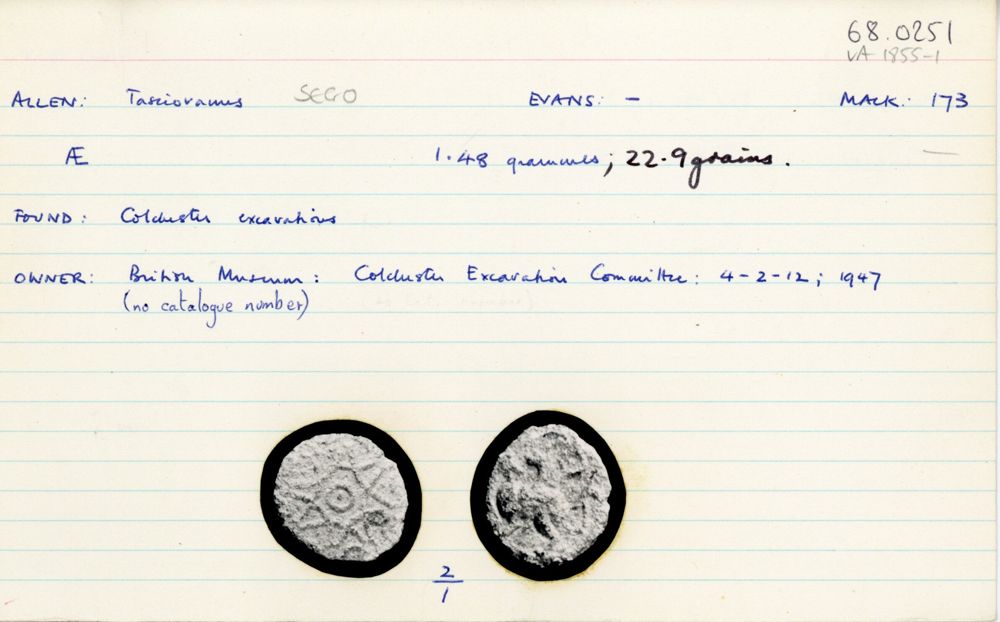 68.0251
VA 1855-1
ALLEN: Tasciovanus SEGO EVANS: — MACK: 173
Æ 1.48 grammes; 22.9 grains. —
FOUND: Colchester excavations
OWNER: British Museum: Colchester Excavation Committee: 4-2-12; 1947
(no catalogue number)
2
1